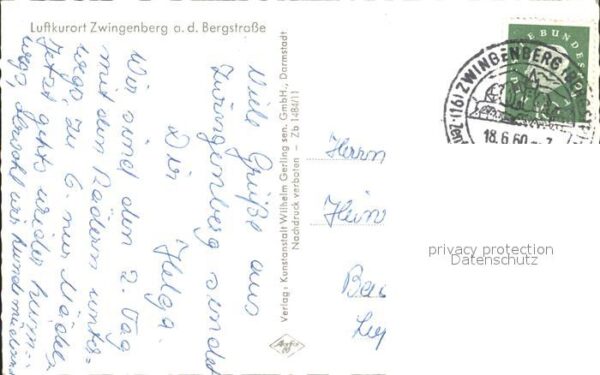 Luftkurort Zwingenberg a.d. Bergstraße
Viele Grüße aus
Zwingenberg sendet
Dir Helga.
Wir sind den 2. Tag
mit den Rädern unter-
wegs, zu 6. nur Mädchen
Jetzt gehts wieder heim-
wegs, obwohl wir hundemüde sind
Verlag: Kunstanstalt Wilhelm Gerling sen. GmbH., Darmstadt
Nachdruck verboten - Zb 1484/11
Agfa
DEUTSCHE BUNDESPOST
(16) ZWINGENBERG
18.6.60 - 7
Herrn
Hein
privacy protection
Datenschutz